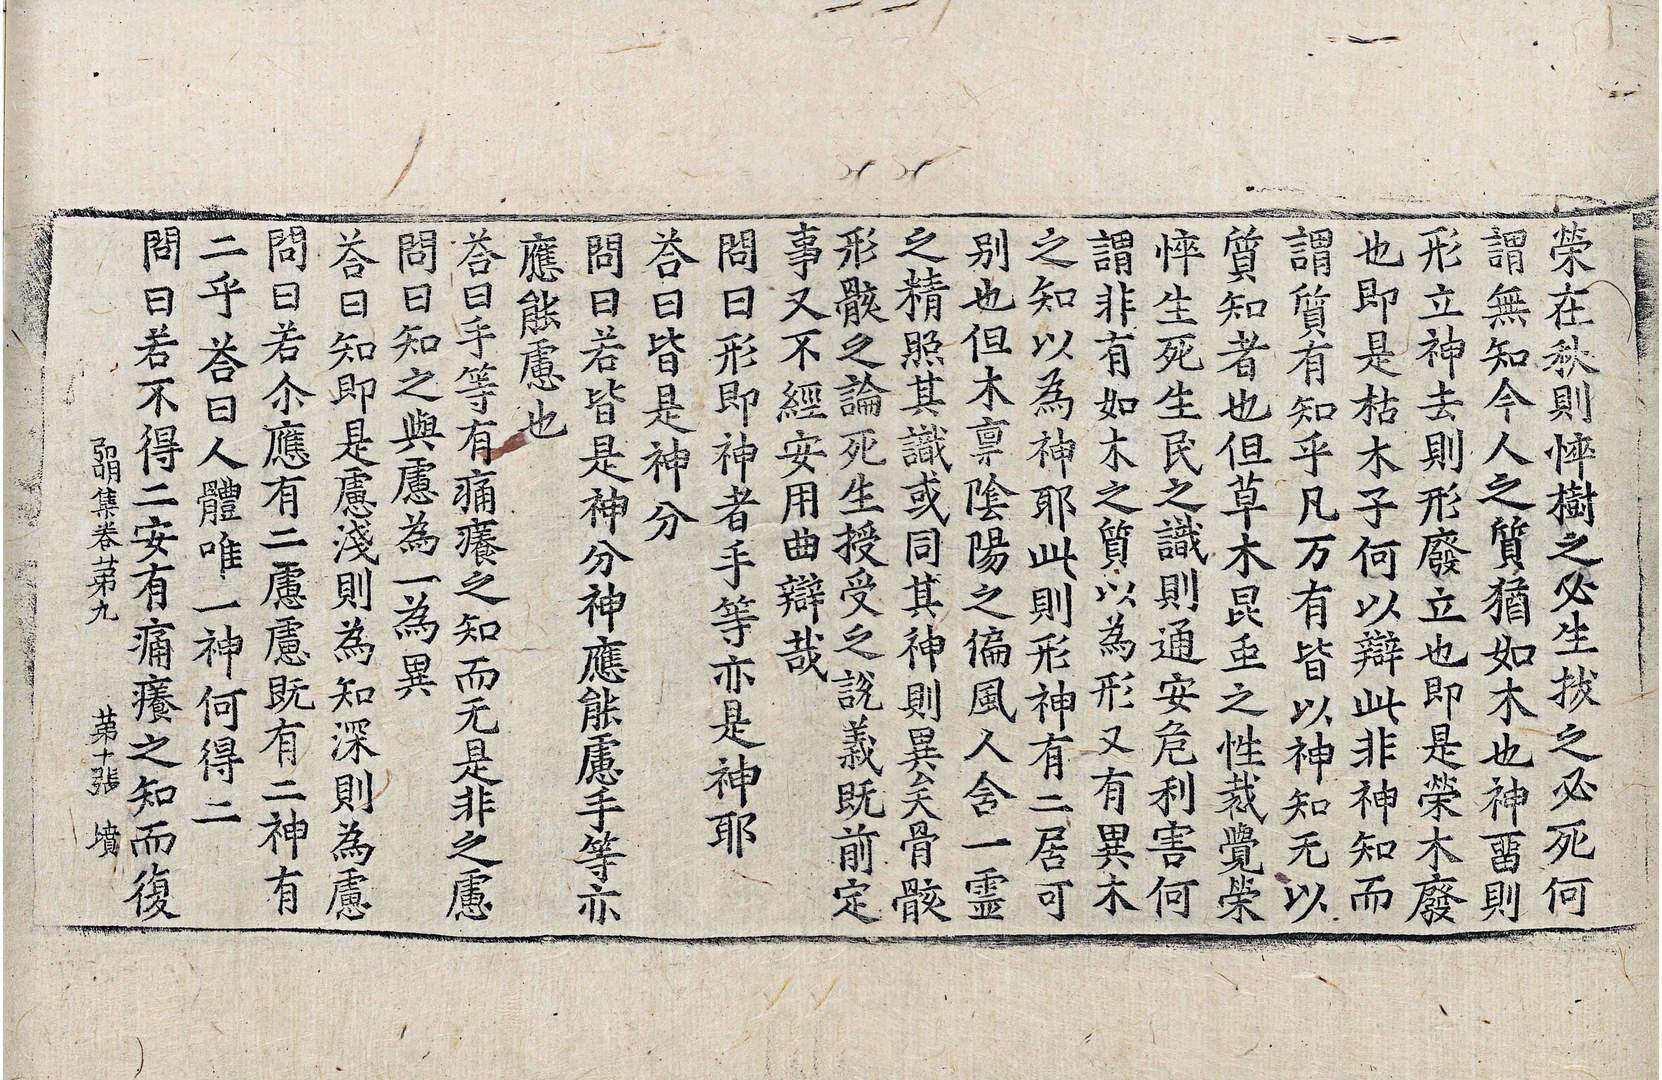 榮在秋則悴樹之必生拔之必死何
謂無知今人之質猶如木也神留則
形立神去則形廢立也即是榮木廢
也即是枯木子何以辯此非神知而
謂質有知乎凡万有皆以神知无以
質知者也但草木昆虫之性裁覺榮
悴生死生民之識則通安危利害何
謂非有如木之質以為形又有異木
之知以為神耶此則形神有二居可
别也但木禀陰陽之偏風人含一靈
之精照其識或同其神則異矣骨骸
形骸之論死生授受之說義既前定
事又不經安用曲辯哉
問曰形即神者手等亦是神耶
荅曰皆是神分
問曰若皆是神分神應能慮手等亦
應能慮也
荅曰手等有痛癢之知而无是非之慮
問曰知之與慮為一為異
荅曰知即是慮淺則為知深則為慮
問曰若尒應有二慮慮既有二神有
二乎荅曰人體唯一神何得二
問曰若不得二安有痛癢之知而復
弘明集卷苐九 苐十張 墳